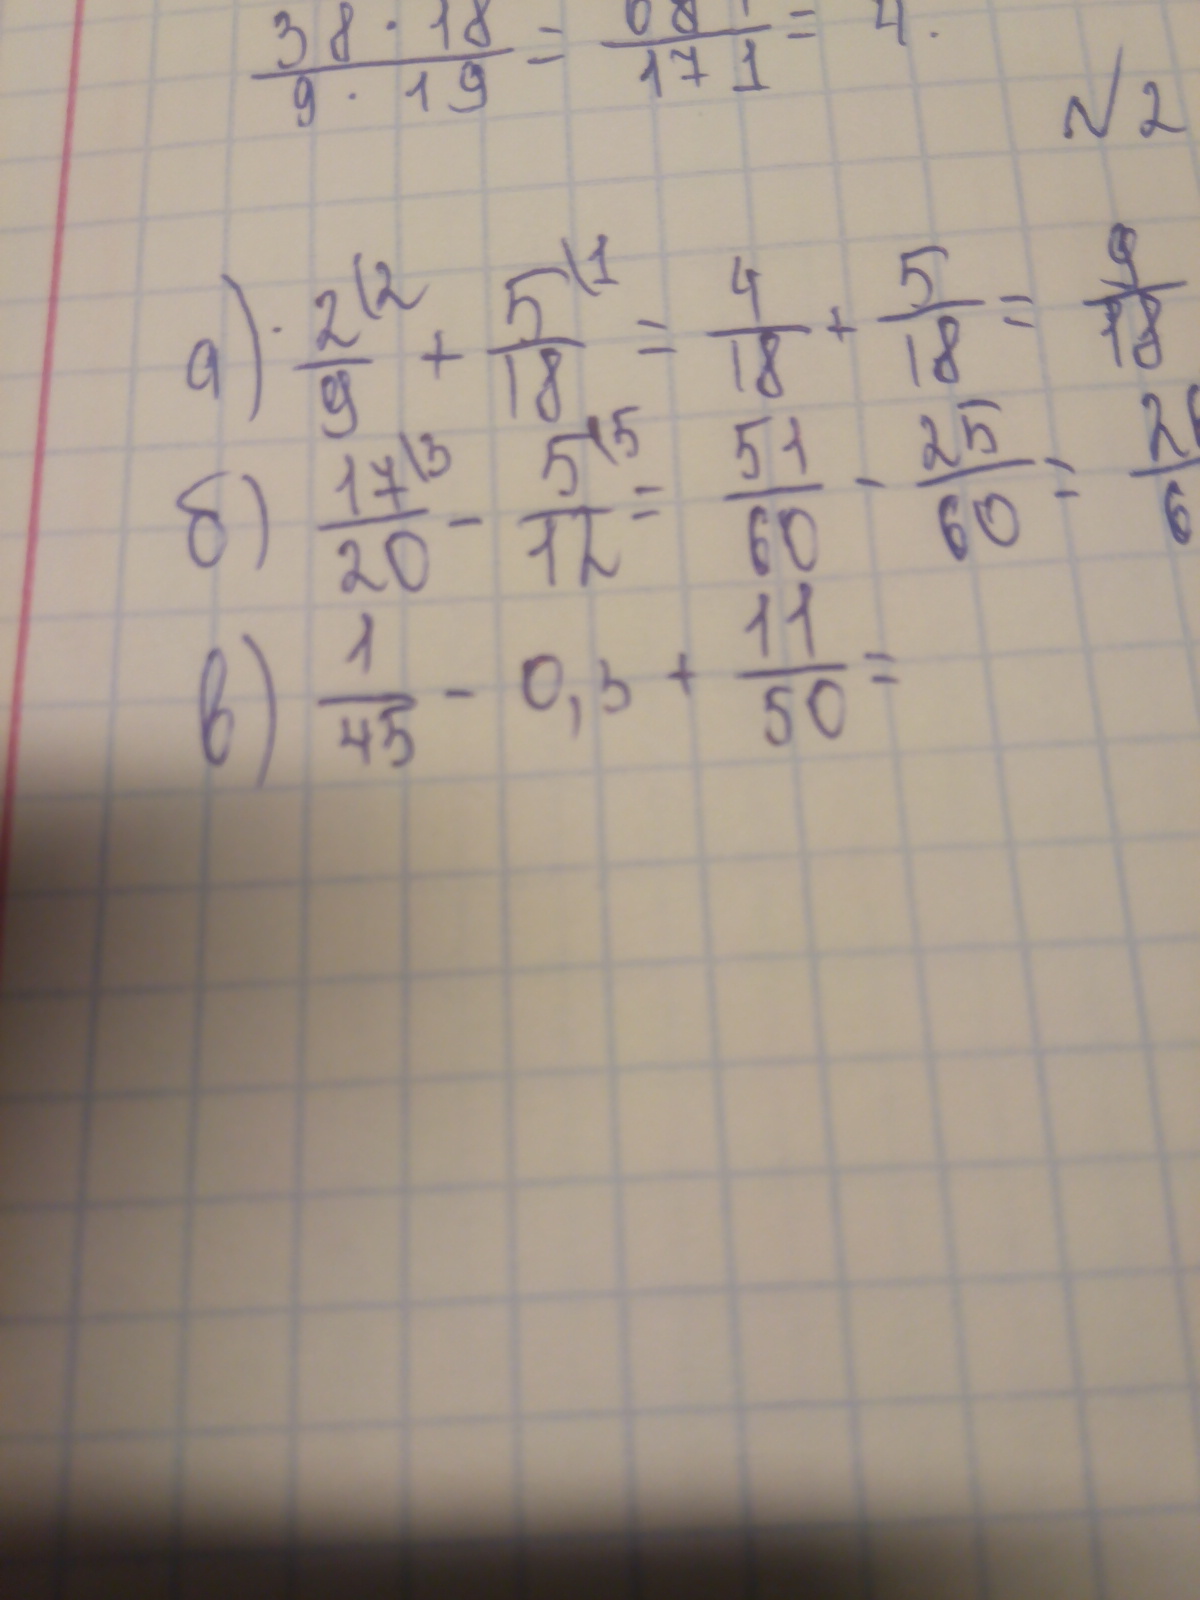 38 · 18 / 9 · 19 = 684 / 171 = 4.
№2
а) 2\2 / 9 + 5\1 / 18 = 4/18 + 5/18 = 9/18
б) 17\3 / 20 - 5\5 / 12 = 51/60 - 25/60 =
в) 1/45 - 0,3 + 11/50 =